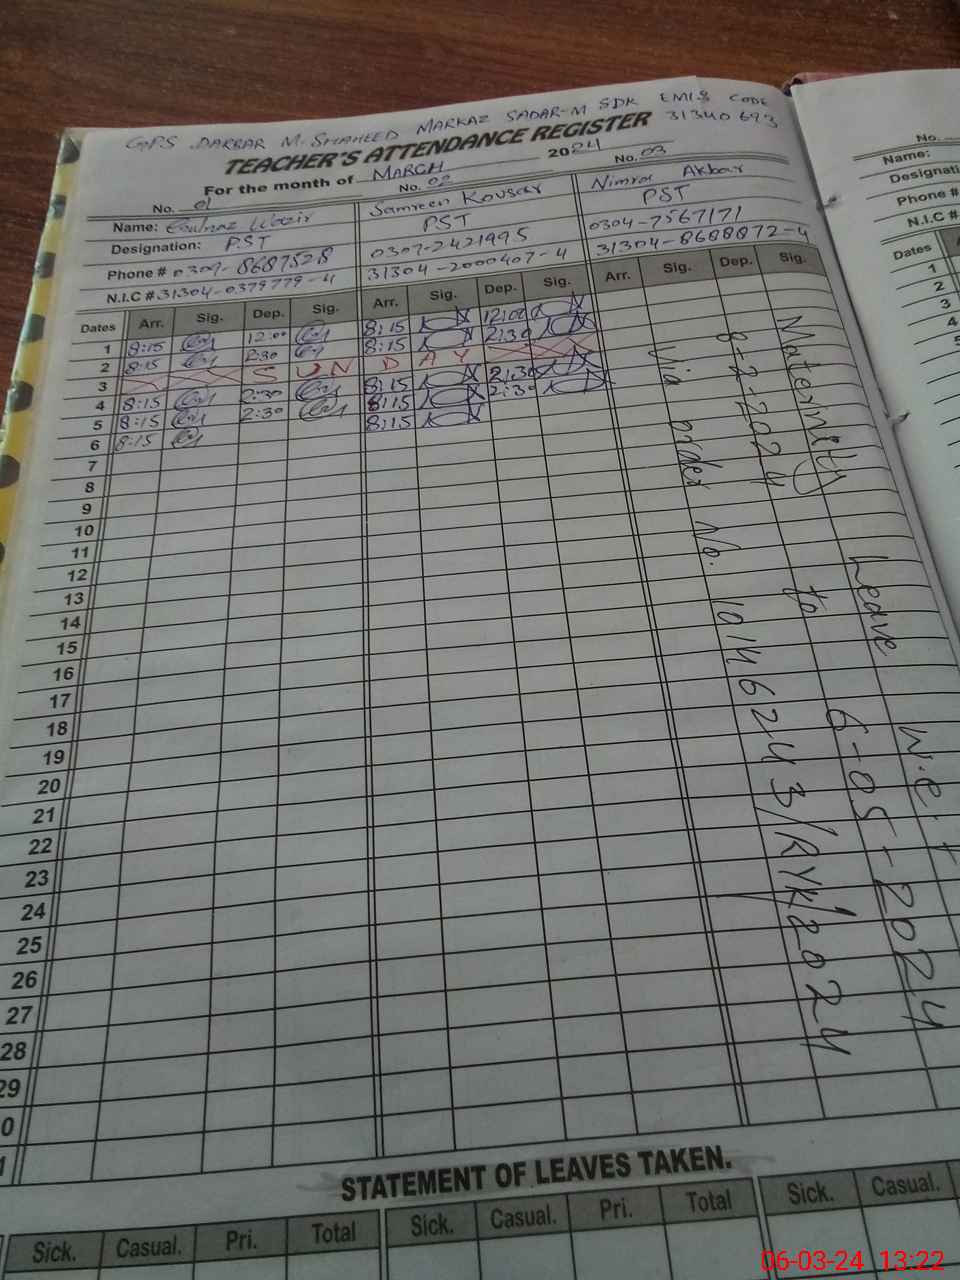 GPS DARBAR M. SHAHEED MARKAZ SADAR-M SDK EMIS CODE
31340693
TEACHER'S ATTENDANCE REGISTER
For the month of MARCH 2024
No. 01 No. 02 No. 03
Name: Gulnaz Wazir Samreen Kousar Nimra Akbar
Designation: PST PST PST
Phone # 0309-8687528 0307-2421995 0304-7567171
N.I.C # 31304-0379779-4 31304-2000407-4 31304-8688872-4
Dates Arr. Sig. Dep. Sig. Arr. Sig. Dep. Sig. Arr. Sig. Dep. Sig.
1 8:15 12:00 8:15 12:00
2 8:15 2:30 8:15 2:30
3 SUNDAY
4 8:15 2:30 8:15 2:30
5 8:15 2:30 8:15 2:30
6 8:15 8:15
7
8
9
10
11
12
13
14
15
16
17
18
19
20
21
22
23
24
25
26
27
28
29
0
1
Maternity Leave w.e.f
8-2-2024 to 6-05-2024
Via order No. 10146243/RYK2024
STATEMENT OF LEAVES TAKEN.
Sick. Casual. Pri. Total Sick. Casual. Pri. Total Sick. Casual.
No.
Name:
Designati
Phone #
N.I.C #
Dates
1
2
3
4
06-03-24 13:22